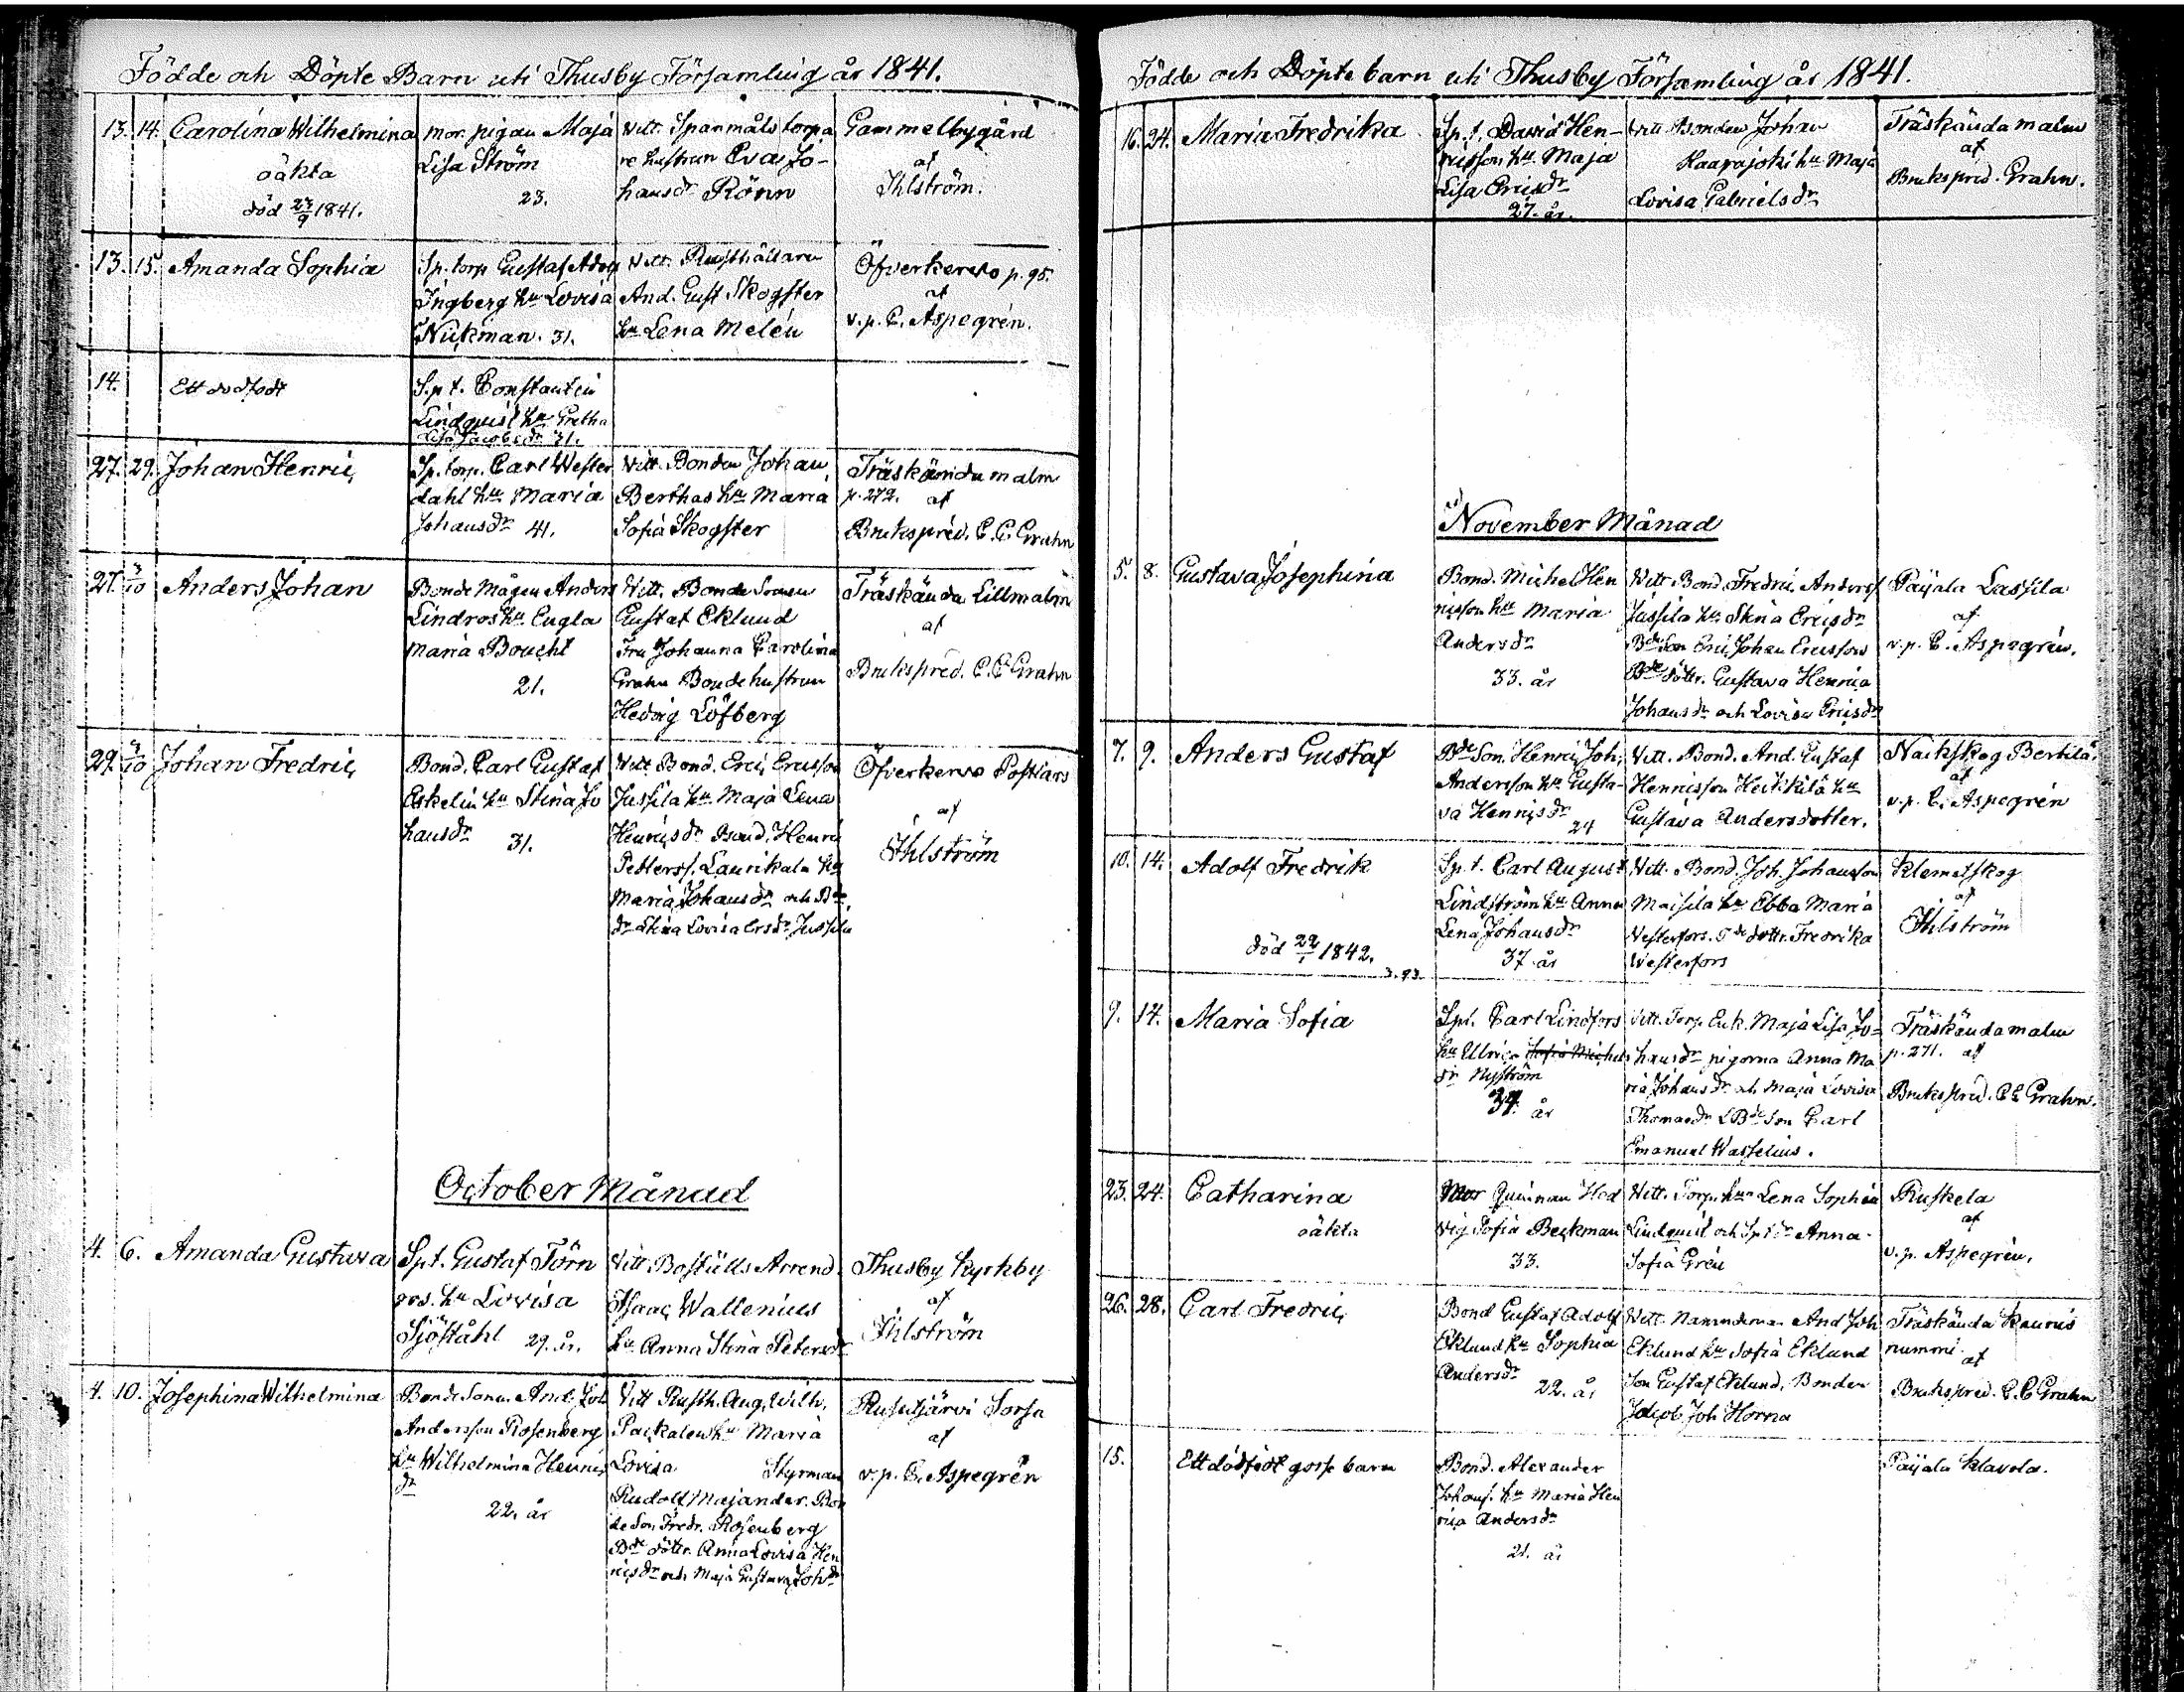 Födde och Döpte Barn uti Thusby Församling år 1841.
13. 14. Carolina Wilhelmina
oäkta
död 23/9 1841.
mor. pigan Maja
Lisa Ström
23.
Vitt. Spanmåls torpa
re hustrun Eva Jo-
hansdr Rönn
Gammelbygård
af
Ihlström.
13. 15. Amanda Sophia
Sp. torp Gustaf Adolf
Ingberg hu Lovisa
Nickman. 31.
Vitt. Rusthållaren
And. Gust Skogster
hu Lena Melén
Öfverkervo p. 95.
af
v. p. C. Aspegrén.
14. Ett dödfödt
Sp t. Constantin
Lindquist hu Gretha
Lisa Jacobsdr 31.
27. 29. Johan Henric
Sp. torp. Carl Wester
dahl hu Maria
Johansdr 41.
Vitt. Bonden Johan
Berthas hu Maria
Sofia Skogster
Träskända malm
p. 272. af
Brukspred. C. C. Grahn
27. 3/10 Anders Johan
Bonde Mågen Anders
Lindros hu Eugla
Maria Boucht
21.
Vitt. Bonde Sonen
Gustaf Eklund
Fru Johanna Carolina
Grahn Bondehustrun
Hedvig Löfberg
Träskända Lillmalm
af
Brukspred. C. C. Grahn
29. 3/10 Johan Fredric
Bond. Carl Gustaf
Eskelin hu Stina Jo
hansdr 31.
Vitt. Bond. Eric Ericsson
Jussila hu Maja Lena
Henricsdr Bond. Henric
Petterss. Laurikala hu
Maria Johansdr och Bde
dr Stina Lovisa Ersdr Jussila
Öfverkervo Postlars
af
Ihlström
October Månad
4. 6. Amanda Gustava
Spt. Gustaf Törn
ros. hu Lovisa
Sjöståhl 29. år.
Vitt Boställs Arrend.
Isaac Wallenius
hu Anna Stina Petersdr
Thusby Kyrkby
af
Ihlström
4. 10. Josephina Wilhelmina
Bonde Sonen. And. Joh
Andersson Rosenberg
hu Wilhelmina Henric
dr
22. år
Vitt Rusth. Aug. Wilh.
Packalen hu Maria
Lovisa Styrman
Rudolf Majander. Bon
de Son Fredr. Rosenberg
Bde dötter. Anna Lovisa Hen
ricsdr och Maja Gustava Johdr
Rusutjärvi Sorsa
af
v. p. C. Aspegrén
Födde och Döpte barn uti Thusby Församling år 1841.
16. 24. Maria Fredrika
Sp. t. David Hen-
ricsson hu Maja
Lisa Ericsdr
27. år.
Vitt Bonden Johan
Haarajoki hu Maja
Lovisa Gabrielsdr
Träskända malm
af
Brukspred. Grahn.
November Månad
5. 8. Gustava Josephina
Bond. Michel Hen
ricsson hu Maria
Andersdr
33. år
Vitt Bond. Fredric Anderss
Jussila hu Stina Ericsdr
Bde Son Eric Johan Ericsson
Bde dötter. Gustava Henrica
Johansdr och Lovisa Ericsdr
Paijala Lassila
af
v. p. C. Aspegrén.
7. 9. Anders Gustaf
Bde Son. Henric Joh.
Andersson hu Gusta-
va Henricsdr
24
Vitt. Bond. And. Gustaf
Henricsson Heikkilä hu
Gustava Andersdotter.
Nackskog Bertila
af
v. p. C. Aspegrén
10. 14. Adolf Fredrik
död 22/1 1842.
3. 93.
Sp. t. Carl August
Lindström hu Anna
Lena Johansdr
37 år
Vitt. Bond. Joh. Johansson
Maisila hu Ebba Maria
Westerfors. Tde dotter. Fredrika
Westerfors
Klemetskog
af
Ihlström
9. 14. Maria Sofia
Spt. Carl Lindfors
hu Ulrica Sofia Michels
dr Nyström
34 år
Vitt. Torp. Enk. Maja Lisa Jo-
hansdr pigorna Anna Ma
ria Johansdr och Maja Lovisa
Thomasdr & Bde Son Carl
Emanuel Wasselius.
Träskända malm
p. 271. af
Brukspred. C C Grahn.
23. 24. Catharina
oäkta
Mor Quinnan Hed
vig Sofia Beckman
33.
Vitt. Torp. hun Lena Sophia
Lindquist och Sptdr Anna
Sofia Grén
Ruskela
af
v. p. Aspegrén.
26. 28. Carl Fredric
Bond Gustaf Adolf
Eklund hu Sophia
Andersdr
22. år
Vitt. Nämndeman And Joh
Eklund hu Sofia Eklund
Son Gustaf Eklund, Bonden
Jacob Joh Horna
Träskända Kauris
nummi
af
Brukspred. C. C Grahn
15. Ett dödfödt gosse barn
Bond. Alexander
Johanss. hu Maria Hen
rica Andersdr
21. år
Paijala Klavola.